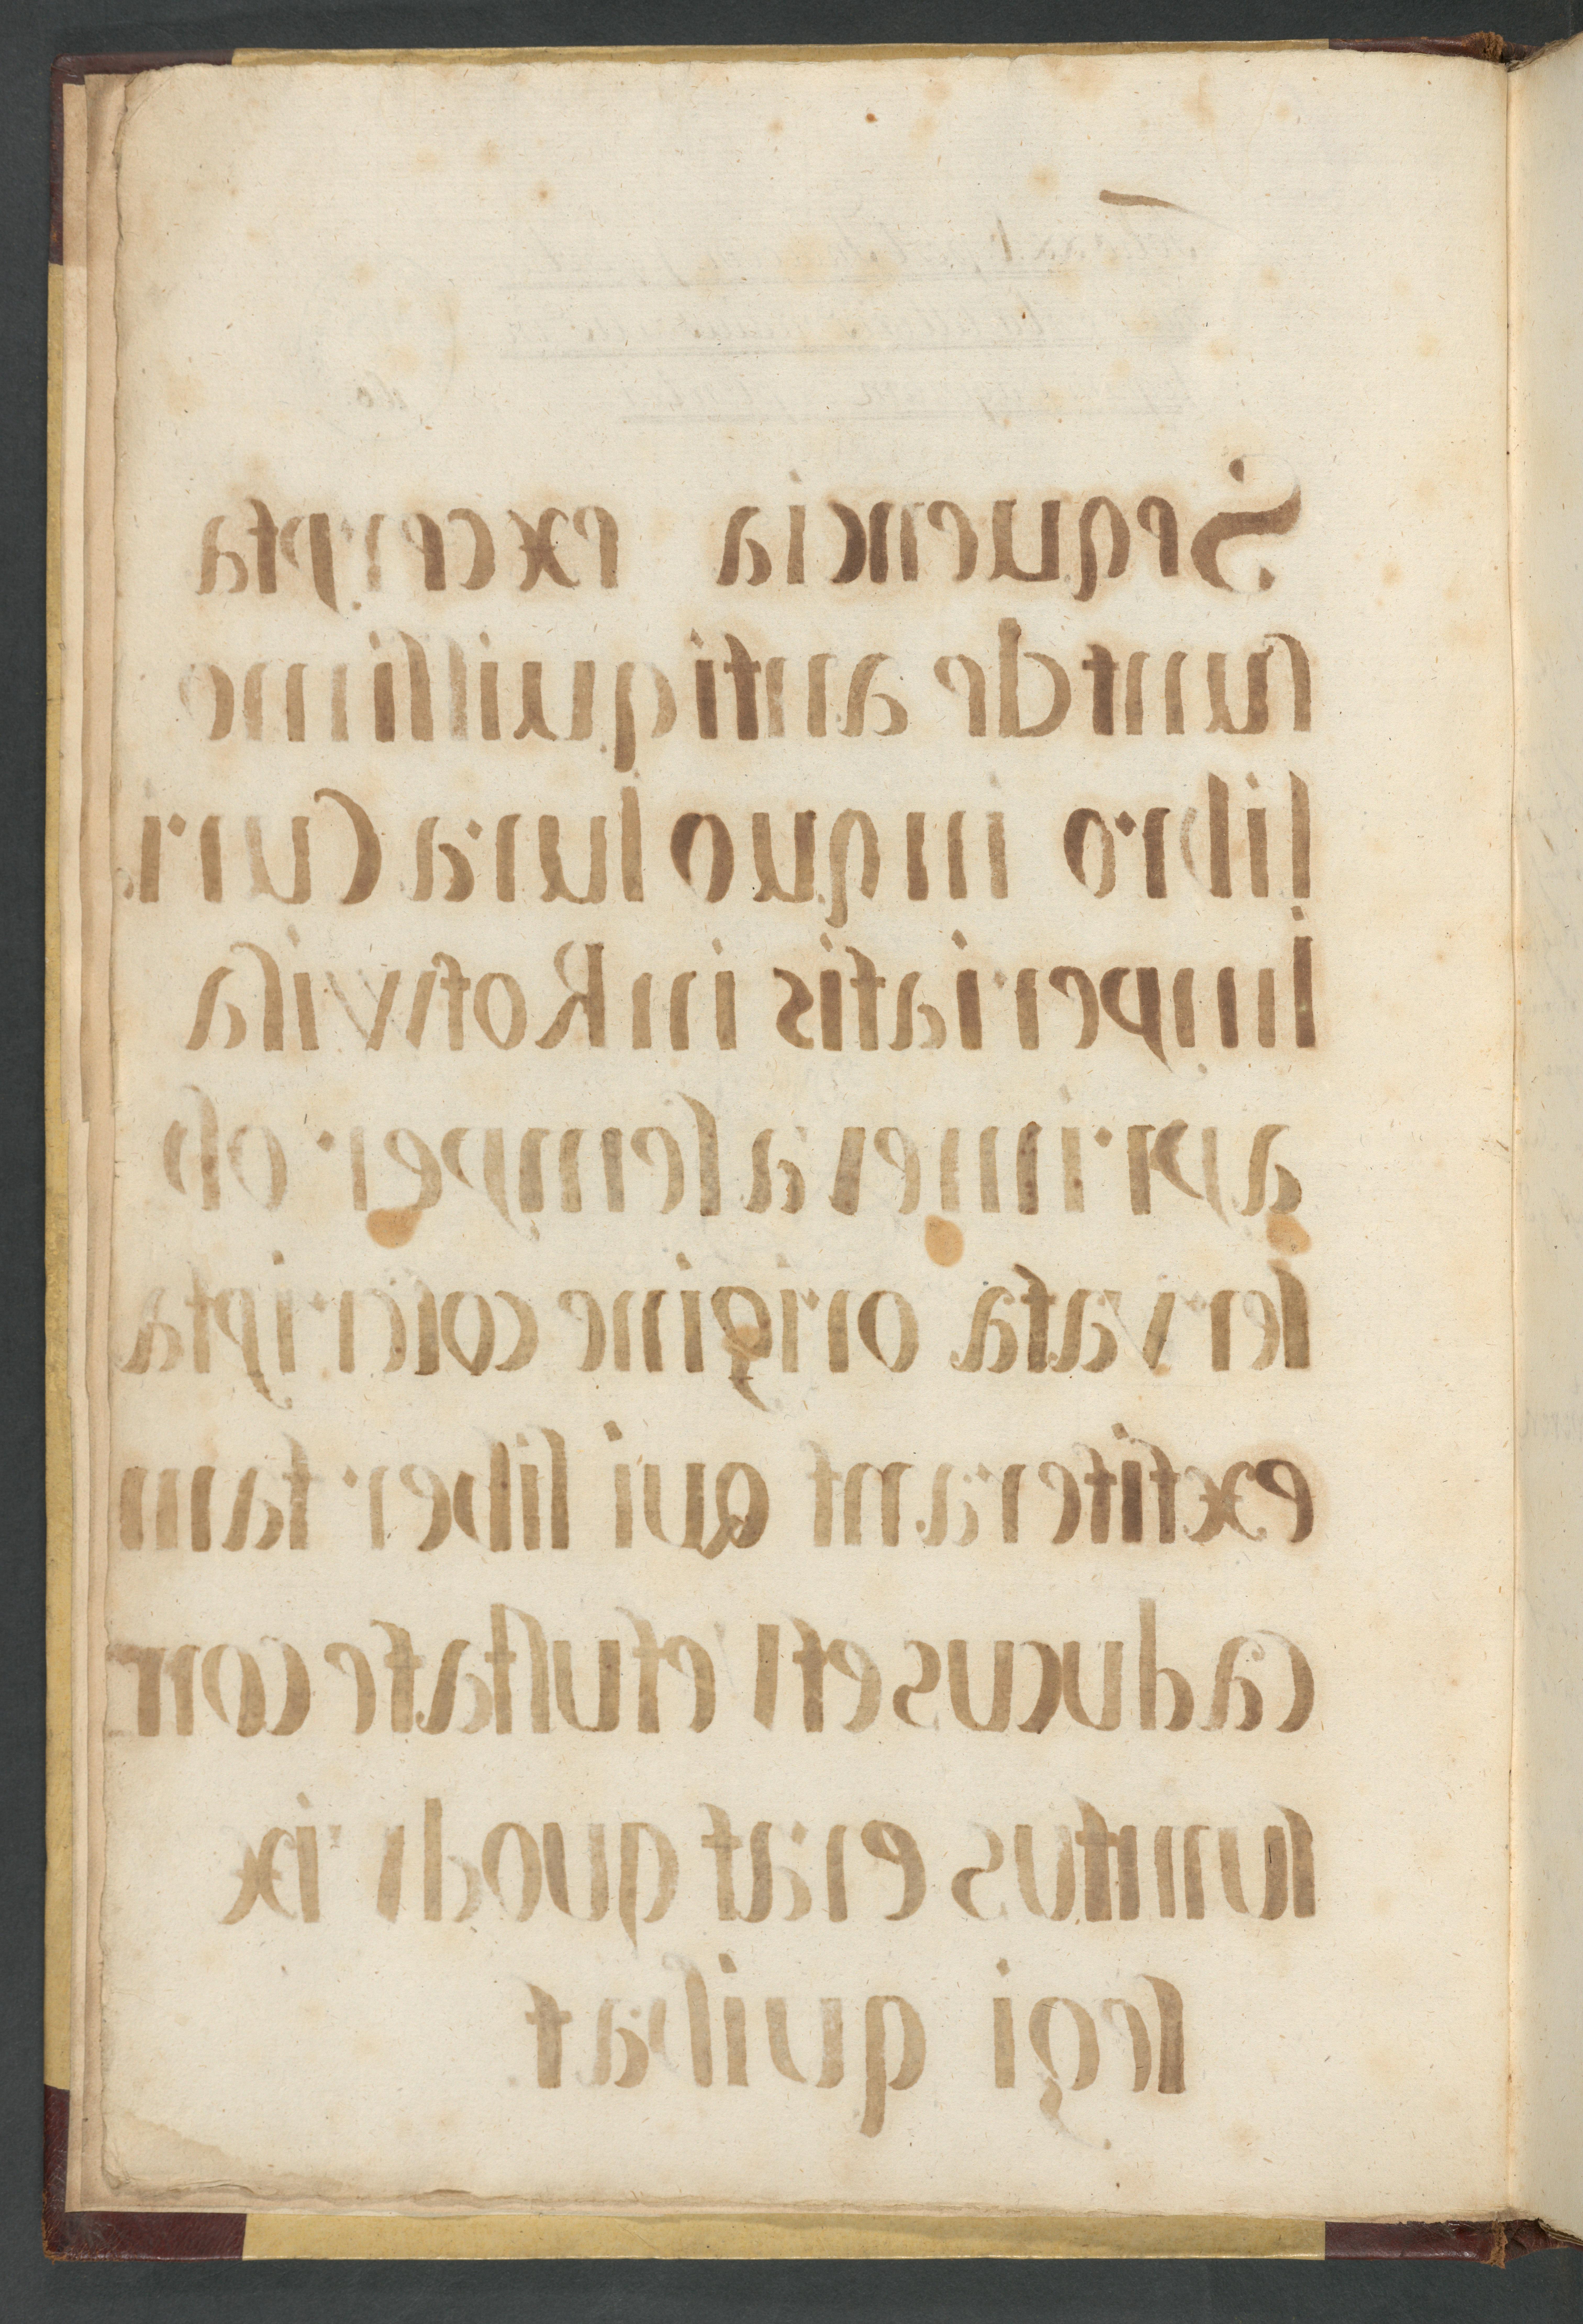 Sequencia excerpta
ſunt de antiquiſſimo
libro in quo Iura Curi.
Imperialis in Rotwila
a primeva ſemper ob
ſervata origine coſcripta
extiterant qui liber tam
caducus et vetuſtate con
ſumtus erat quod vix
legi quibat